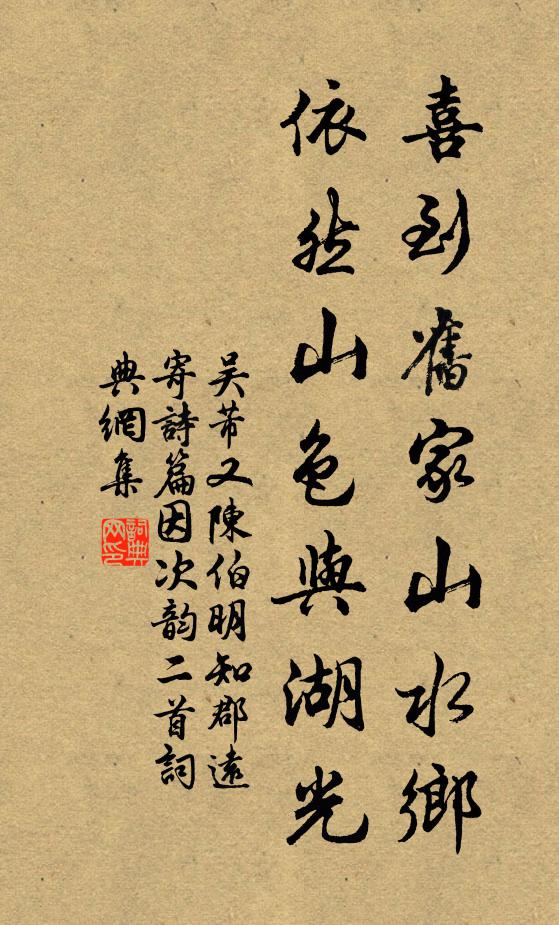 喜到舊家山水鄉
依然山色與湖光
吴芾又陳伯明知郡遠
寄詩篇因次韵二首詞
典網集
詞典
网印